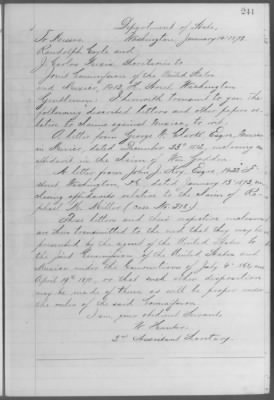 241
Department of State,
Washington, January 14, 1873.
To Messrs.
Randolph Coyle and
J. Carlos Mexia, Secretaries to
Joint Commission of the United States
and Mexico, 1413, H. Street, Washington
Gentlemen: I herewith transmit to you the
following described letters and other papers re-
lative to claims against Mexico, to wit:
A letter from George W. Esqre,
in Mexico, dated December 23d 1872, enclosing an
affidavit in the claim of Wm
A letter from John J. Key, Esqre, F
street Washington, D.C. dated January 13th 1873, en-
closing affidavits relative to the claim of Ra-
phael G. Miller (case No. 373.)
These letters and their respective enclosures
are thus transmitted to the end that they may be
presented by the agent of the United States to
the Joint Commission of the United States and
Mexico under the Conventions of July 4th 1868, and
April 19th 1871, or that such other disposition
may be made of them as will be proper under
the rules of the said Commission.
I am, your obedient Servant,
W. Hunter.
2nd Assistant Secretary.